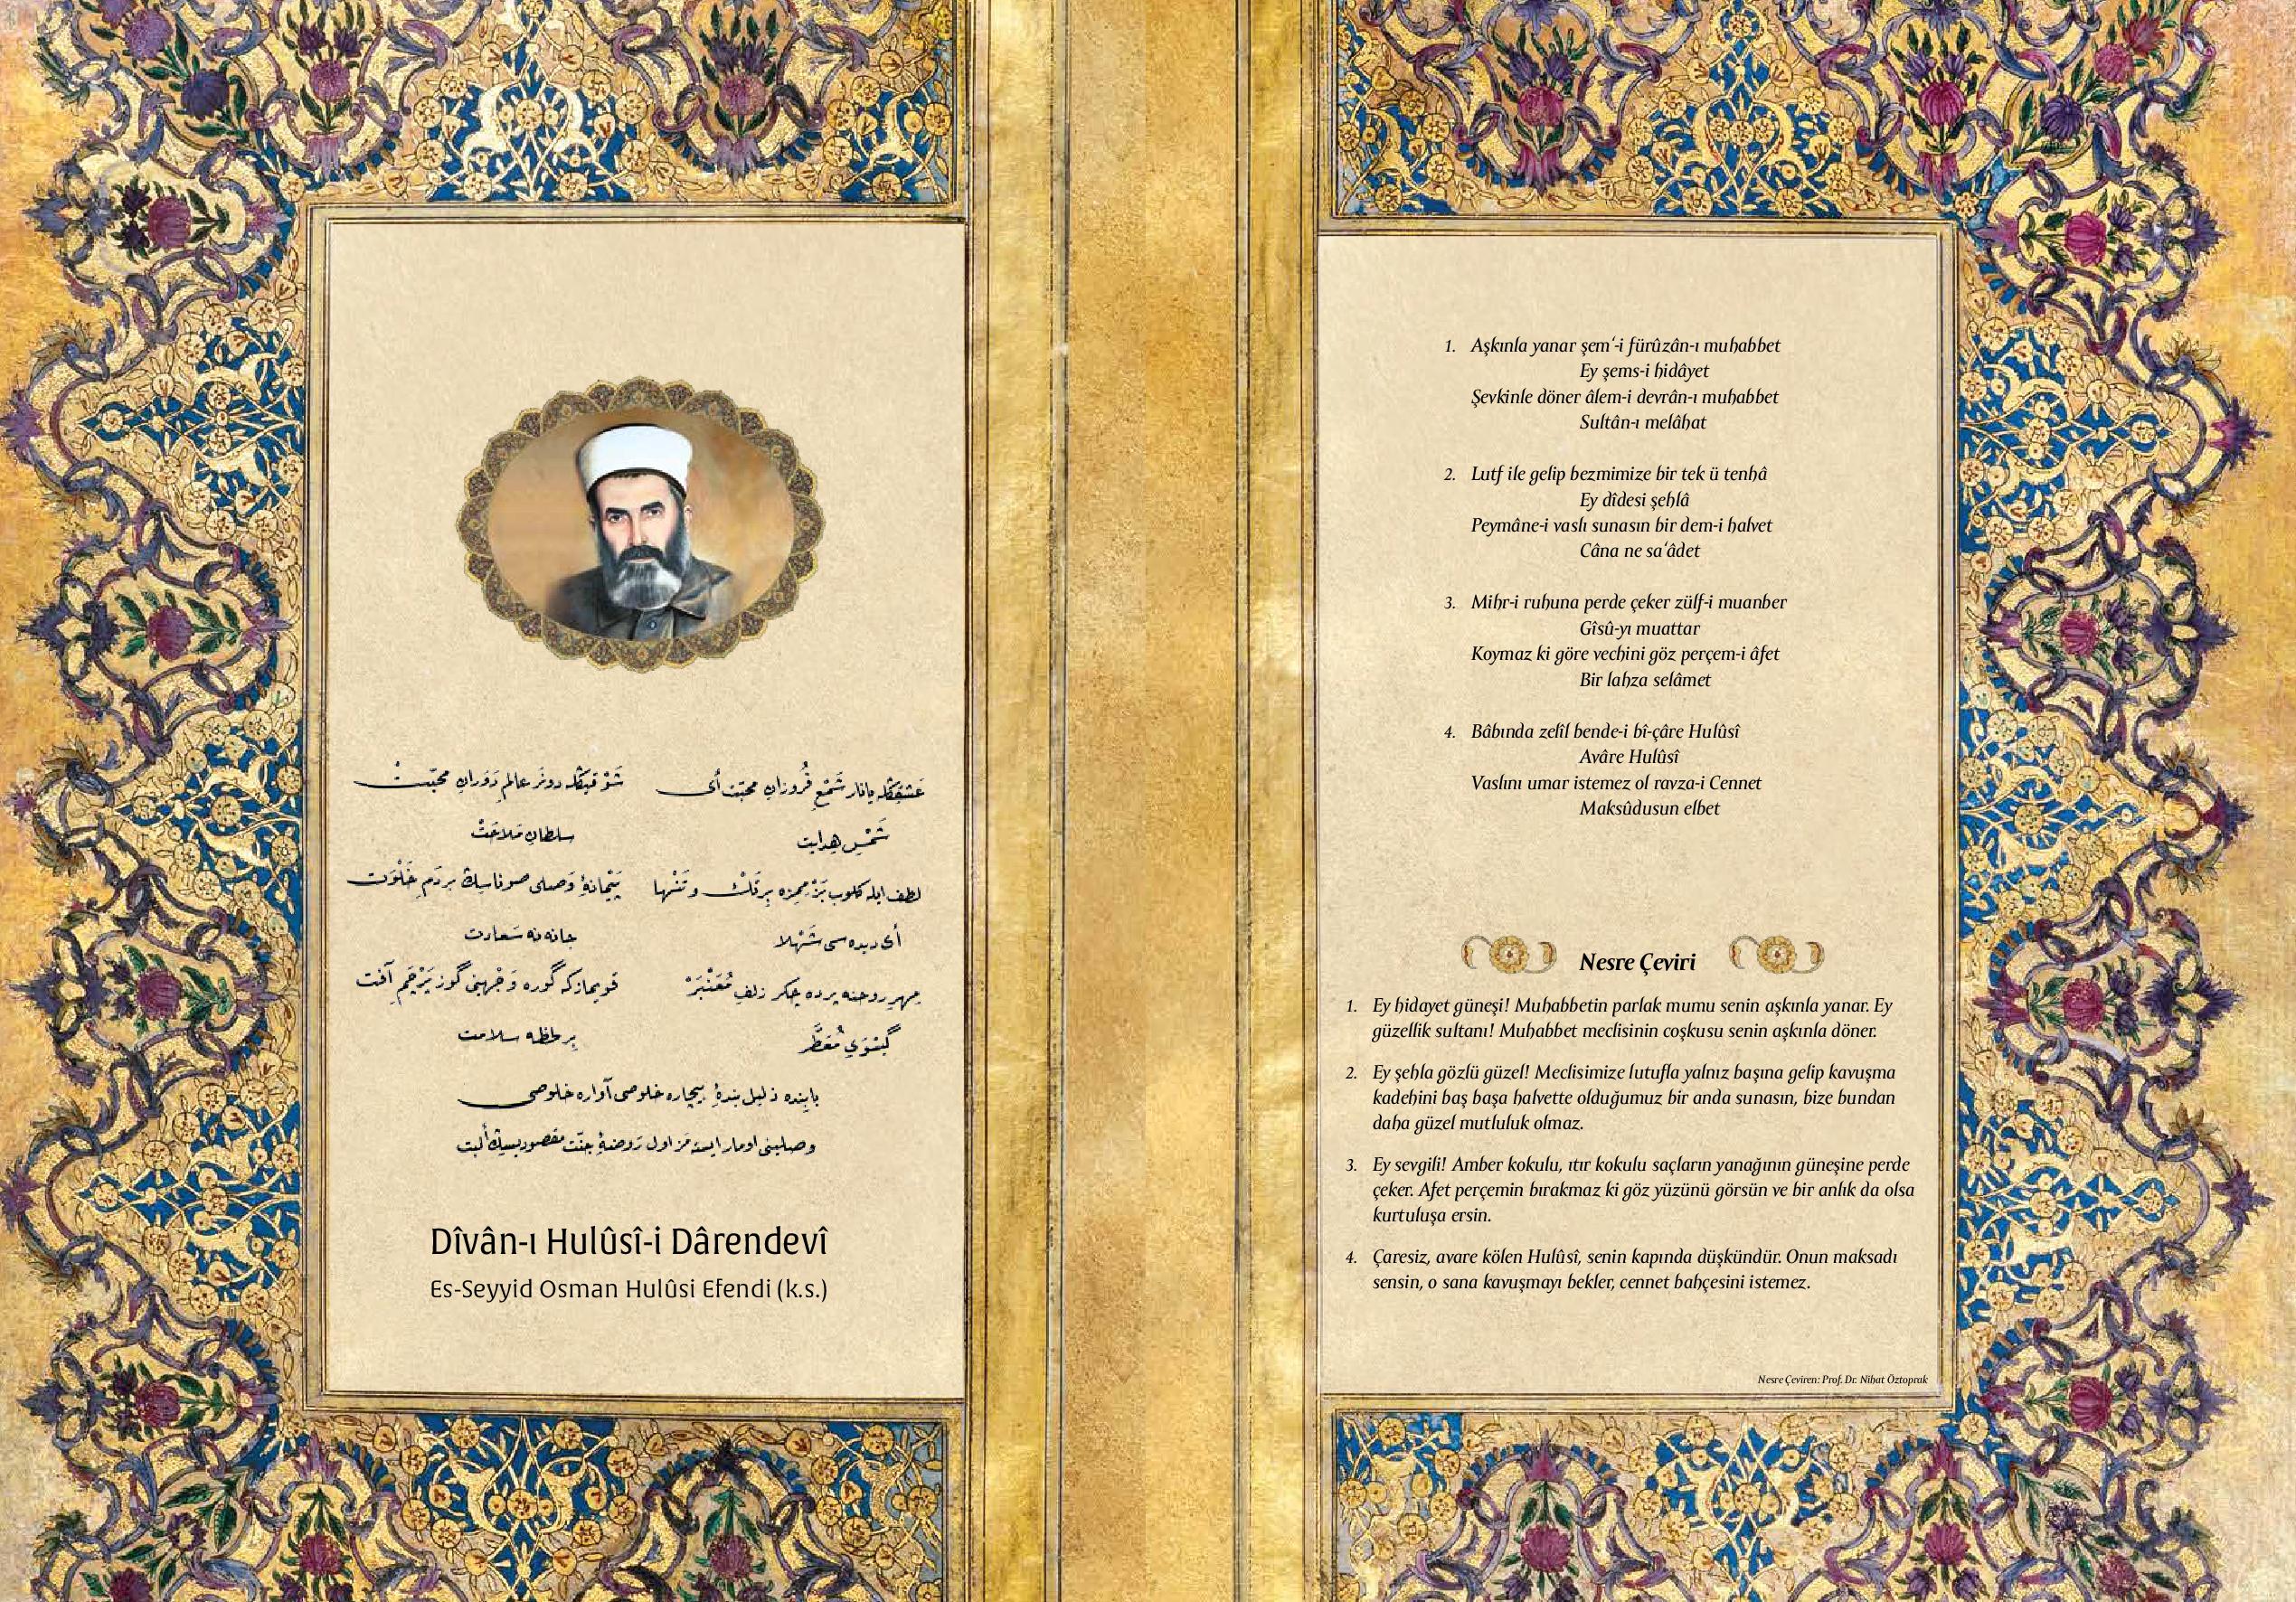 عَشْقِڭله يانار شَمْعِ فُروزانِ محبّت أى
شَوْقيڭله دونَر عالمِ دَوَرانِ محبّتْ
شَمْسِ هِدايت
سلطانِ مَلاحَتْ
لطف ايله كلوب بَزْمِمِزه بِر تَكْ و تَنْها
پَيْمانهٔ وَصلى صوناسِڭ بر دَمِ خَلْوَت
أى ديده سى شَهْلا
جانه نه سَعادت
مِهرِ روحنه پرده چكر زلفِ مُعَنْبَرْ
قويماز كه گوره وَجْهِينى گوز پَرْچَمِ آفت
گيسُوىِ مُعَطَّر
بِر لحظه سلامت
بابنده ذليل بندهٔ بيچاره خلوصى آواره خلوصى
وصلينى اومار ايسته مَز اول رَوضهٔ جنّت مقصوديسِڭ ألبت
Dîvân-ı Hulûsî-i Dârendevî
Es-Seyyid Osman Hulûsi Efendi (k.s.)
1. Aşkınla yanar şem‘-i fürûzân-ı muhabbet
Ey şems-i hidâyet
Şevkinle döner âlem-i devrân-ı muhabbet
Sultân-ı melâhat
2. Lutf ile gelip bezmimize bir tek ü tenhâ
Ey dîdesi şehlâ
Peymâne-i vaslı sunasın bir dem-i halvet
Câna ne sa‘âdet
3. Mihr-i ruhuna perde çeker zülf-i muanber
Gîsû-yı muattar
Koymaz ki göre vechini göz perçem-i âfet
Bir lahza selâmet
4. Bâbında zelîl bende-i bî-çâre Hulûsî
Avâre Hulûsî
Vaslını umar istemez ol ravza-i Cennet
Maksûdusun elbet
Nesre Çeviri
1. Ey hidayet güneşi! Muhabbetin parlak mumu senin aşkınla yanar. Ey
güzellik sultanı! Muhabbet meclisinin coşkusu senin aşkınla döner.
2. Ey şehla gözlü güzel! Meclisimize lutufla yalnız başına gelip kavuşma
kadehini baş başa halvette olduğumuz bir anda sunasın, bize bundan
daha güzel mutluluk olmaz.
3. Ey sevgili! Amber kokulu, ıtır kokulu saçların yanağının güneşine perde
çeker. Afet perçemin bırakmaz ki göz yüzünü görsün ve bir anlık da olsa
kurtuluşa ersin.
4. Çaresiz, avare kölen Hulûsî, senin kapında düşkündür. Onun maksadı
sensin, o sana kavuşmayı bekler, cennet bahçesini istemez.
Nesre Çeviren: Prof. Dr. Nihat Öztoprak